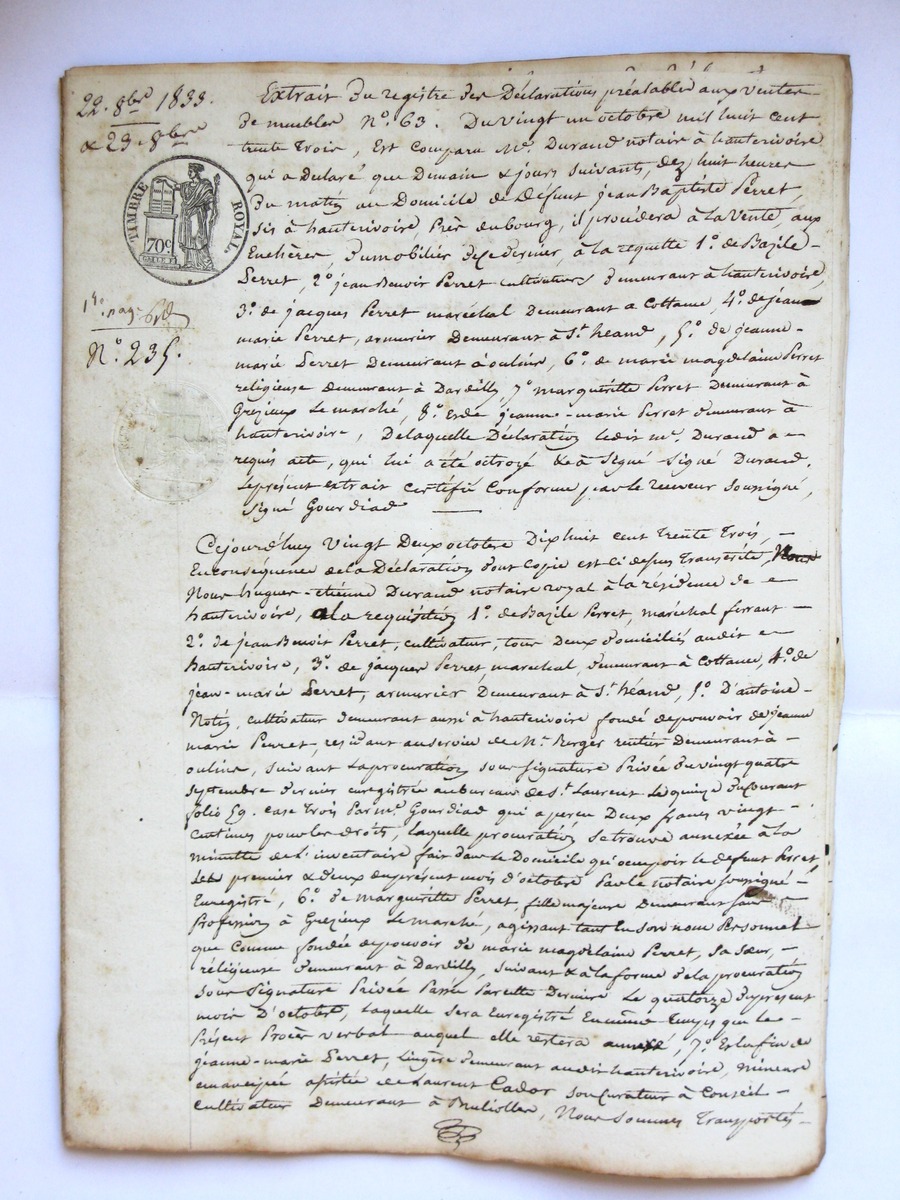 22. 8bre 1833.
& 23. 8bre
TIMBRE ROYAL
70c
1re. pag.
N°. 235.
Extrait du registre des Déclarations préalables aux ventes
de meubles N°. 63. Du vingt un octobre mil huit cent
trente trois, Est Comparu Me. Durand notaire à hauterivoire
qui a Déclaré que Demain & jours suivants, dez huit heures
Du matin au Domicile de Défunt jean Baptiste Perret
sis à hauterivoire Près du bourg, il procédera à la Vente, aux
Enchères, du mobilier de ce dernier, à la requête 1°. de Bazile
Perret, 2°. jean Benoir Perret cultivateurs demeurant à hauterivoire,
3°. de jacques Perret maréchal Demeurant a Cottance, 4°. de jean
marie Perret, armurier Demeurant à St. héand, 5°. de jeanne-
marie Perret Demeurant à oulins, 6°. de marie magdelaine Perret
religieuse demeurant à Dardilly, 7°. margueritte Perret Demeurant à
Grezieux Le marché, 8°. Et de jeanne-marie Perret demeurant à
hauterivoire, De laquelle Déclaration ledit me. Durand a
requis acte, qui lui a été octroyé & a signé signé Durand.
Le présent extrait certifié Conforme par le receveur soussigné,
signé Gourdiad
Cejourd'huy Vingt Deux octobre Dix huit cent Trente Trois,
En conséquence de la Déclaration dont Copie est ci dessus Transcritte,
Nous hugues-étienne Durand notaire royal à la résidence de
hauterivoire, a la requisition 1°. de Bazile Perret, maréchal ferrant
2°. de jean Benoit Perret, cultivateur, tous Deux domiciliés audit
hauterivoire, 3°. de jacques Perret, maréchal, demeurant à Cottance, 4°. de
jean-marie Perret, armurier Demeurant à St. héand, 5°. D'antoine
cultivateur demeurant aussi à hauterivoire fondé de pouvoir de jeanne
marie Perret, residant au service de Mr. Berger rentier Demeurant à
oulins, suivant la procuration sous signature Privée du vingt quatre
septembre dernier enregistrée au bureau de St. Laurent Le quinze du courant
folio 59. case Trois Par me. Gourdiad qui a perçu Deux francs vingt
Centimes pour les droits, laquelle procuration se trouve annexée à la
minutte de L'inventaire fait dans Le Domicile qu'occupoit le défunt Perret,
Les premier & deux du présent mois d'octobre Par le notaire soussigné
Enregistré, 6°. de margueritte Perret, fille majeure Demeurant sans
Profession à Grezieux Le marché, agissant tant en son nom Personnel
que Comme fondée de pouvoir de marie magdelaine Perret, sa sœur,
réligieuse demeurant à Dardilly, suivant & à la forme de la procuration
sous signature Privée Passée Par cette Dernière Le quatorze du présent
mois D'octobre, laquelle sera Enregistré En même temps que le
Présent Procès verbal auquel elle restera annexé, 7°. Et enfin de
jeanne-marie Perret, lingère demeurant audit hauterivoire, mineure
émancipée assistée de Laurent Cador son Curateur à Conseil
cultivateur Demeurant à Brulliolles, Nous sommes Transportés